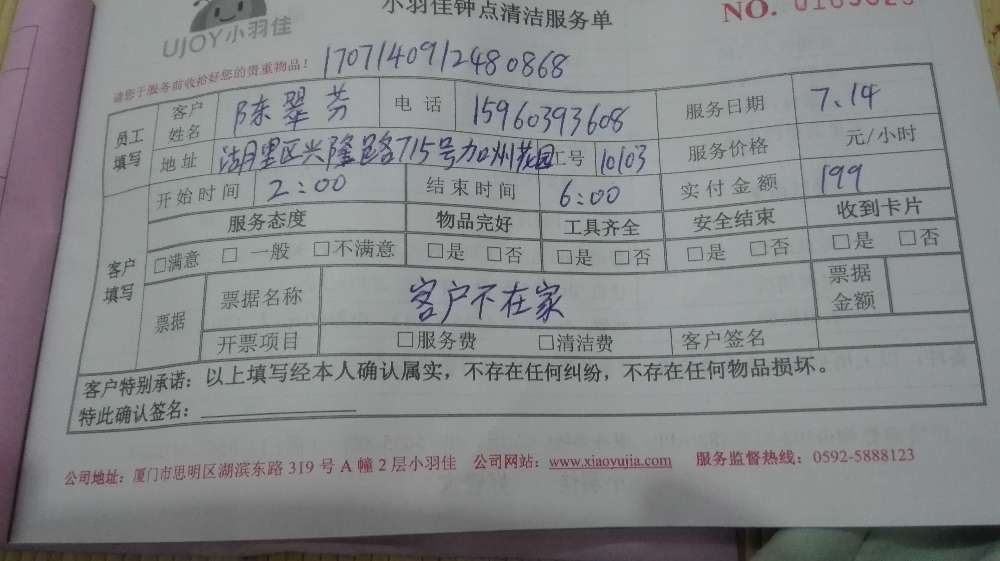 小羽佳钟点清洁服务单
NO. 0165623
UJOY小羽佳
请您于服务前收拾好您的贵重物品! 1707140912480868
员工填写 客户姓名 陈翠芬 电话 15960393608 服务日期 7.14
地址 湖里区兴隆路715号加州花园 工号 10103 服务价格 元/小时
开始时间 2:00 结束时间 6:00 实付金额 199
客户填写 服务态度 物品完好 工具齐全 安全结束 收到卡片
□满意 □一般 □不满意 □是 □否 □是 □否 □是 □否 □是 □否
票据 票据名称 客户不在家 票据金额
开票项目 □服务费 □清洁费 客户签名
客户特别承诺:以上填写经本人确认属实,不存在任何纠纷,不存在任何物品损坏。
特此确认签名:
公司地址:厦门市思明区湖滨东路 319 号 A 幢 2 层小羽佳 公司网站:www.xiaoyujia.com 服务监督热线:0592-5888123